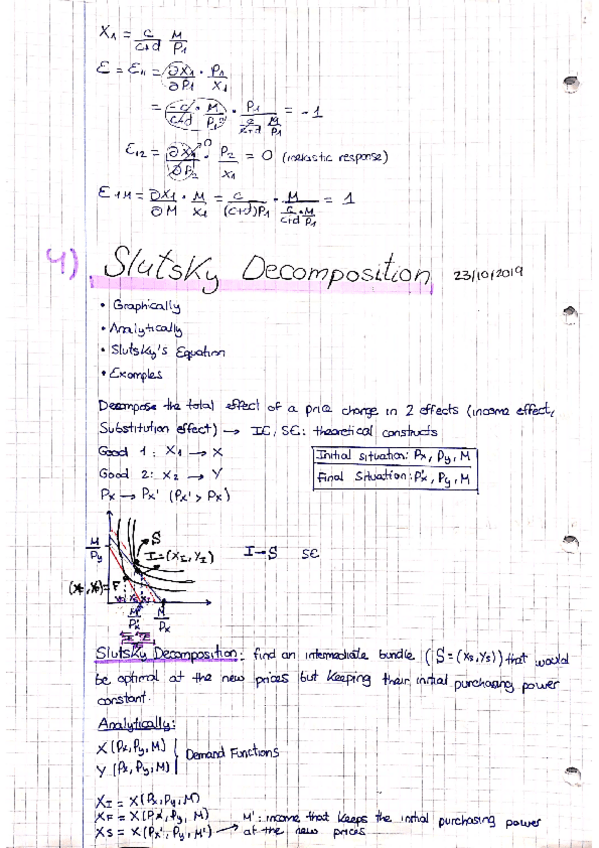 X₁ = c/(c+d) M/P₁
Ɛ = Ɛ₁₁ = ∂X₁/∂P₁ · P₁/X₁
= -c/(c+d) · M/P₁² · P₁/(c/(c+d) M/P₁) = -1
Ɛ₁₂ = ∂X₁/∂P₂ → 0 · P₂/X₁ = 0 (inelastic response)
Ɛ₁M = ∂X₁/∂M · M/X₁ = c/((c+d)P₁) · M/(c/(c+d) · M/P₁) = 1
4) Slutsky Decomposition 23/10/2019
• Graphically
• Analytically
• Slutsky's Equation
• Examples
Decompose the total effect of a price change in 2 effects (income effect,
Substitution effect) → IE, SE: theoretical constructs
Good 1: X₁ → X
Good 2: X₂ → Y
Px → Px' (Px' > Px)
Initial situation: Px, Py, M
Final Situation: P'x, Py, M
M/Py
S
I = (XI, YI)
I → S SE
(XF, YF) = F
M/P'x M/Px
Slutsky Decomposition: find an intermediate bundle (S = (Xs, Ys)) that would
be optimal at the new prices but keeping their initial purchasing power
constant.
Analytically:
X (Px, Py, M)
Y (Px, Py, M)
Demand Functions
XI = X(Px, Py, M)
XF = X(Px', Py, M)
XS = X(Px', Py, M') → M': income that keeps the initial purchasing power
at the new prices